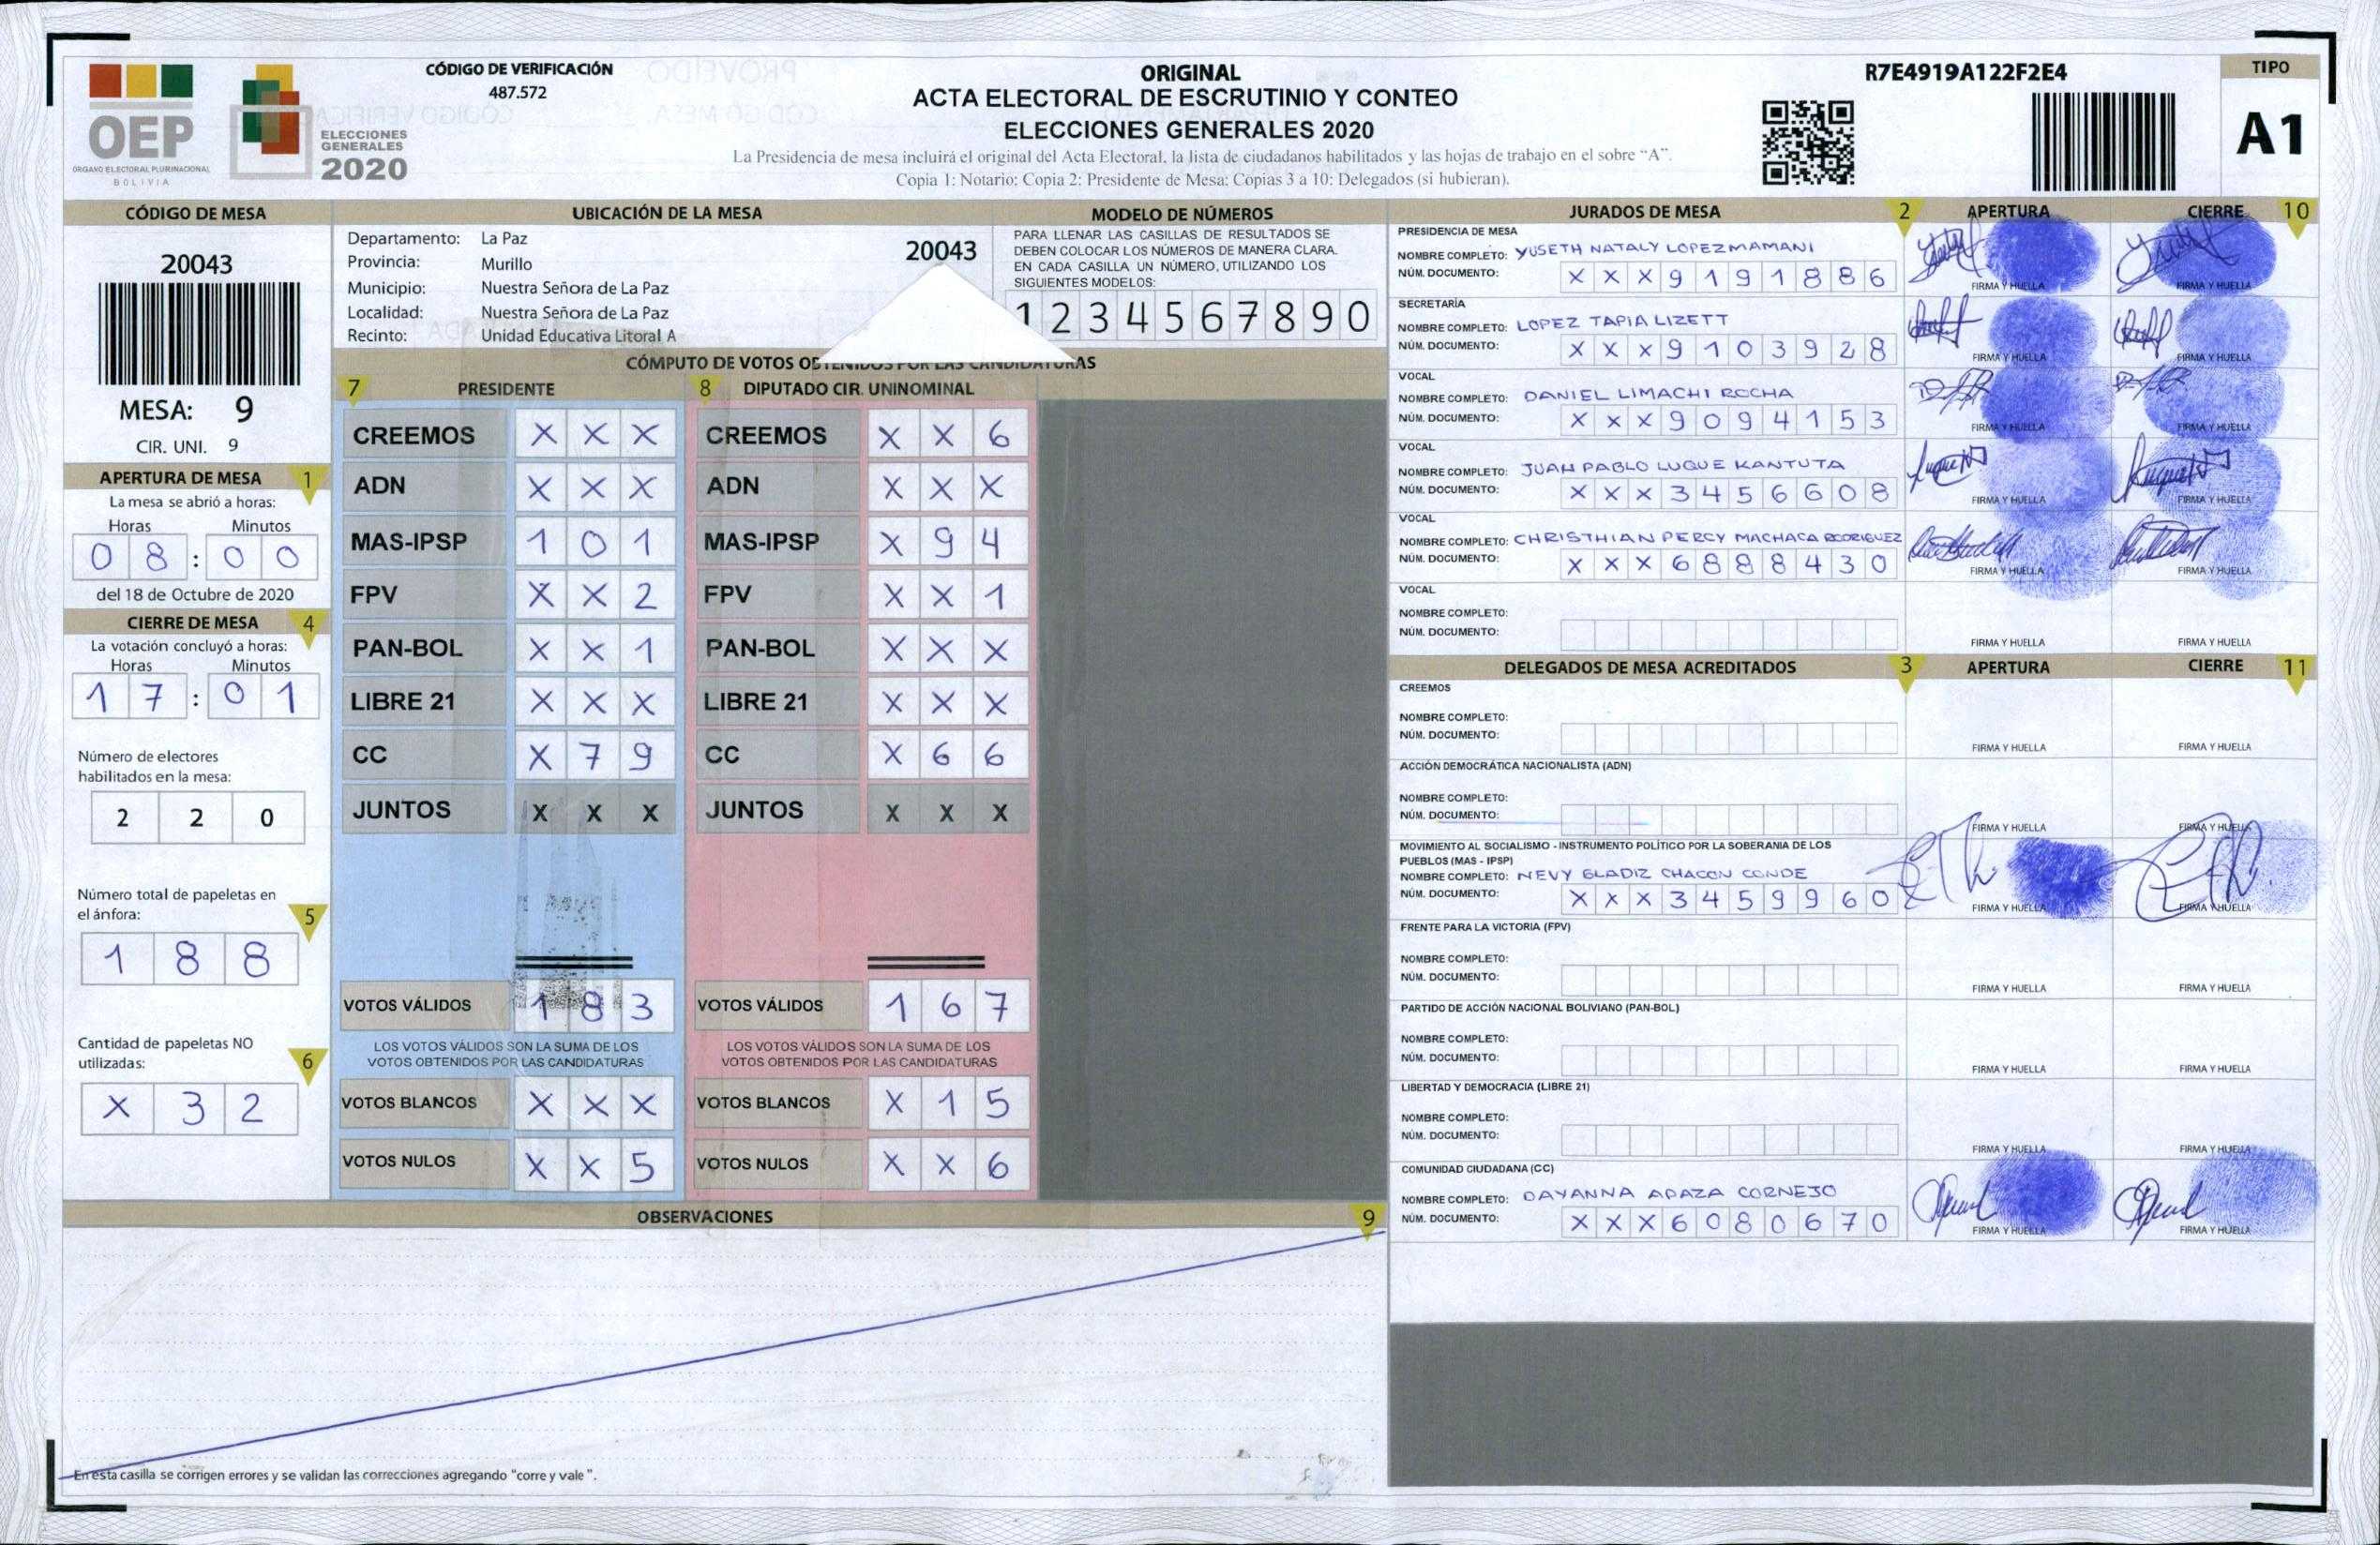 OEP
ORGANO ELECTORAL PLURINACIONAL
BOLIVIA
ELECCIONES
GENERALES
2020
CÓDIGO DE VERIFICACIÓN
487.572
ORIGINAL
ACTA ELECTORAL DE ESCRUTINIO Y CONTEO
ELECCIONES GENERALES 2020
La Presidencia de mesa incluirá el original del Acta Electoral, la lista de ciudadanos habilitados y las hojas de trabajo en el sobre "A".
Copia 1: Notario; Copia 2: Presidente de Mesa; Copias 3 a 10: Delegados (si hubieran).
R7E4919A122F2E4
TIPO
A1
CÓDIGO DE MESA
20043
MESA: 9
CIR. UNI. 9
APERTURA DE MESA 1
La mesa se abrió a horas:
Horas Minutos
0 8 : 0 0
del 18 de Octubre de 2020
CIERRE DE MESA 4
La votación concluyó a horas:
Horas Minutos
1 7 : 0 1
Número de electores
habilitados en la mesa:
2 2 0
Número total de papeletas en
el ánfora: 5
1 8 8
Cantidad de papeletas NO
utilizadas: 6
X 3 2
UBICACIÓN DE LA MESA
Departamento: La Paz
Provincia: Murillo
Municipio: Nuestra Señora de La Paz
Localidad: Nuestra Señora de La Paz
Recinto: Unidad Educativa Litoral A
20043
MODELO DE NÚMEROS
PARA LLENAR LAS CASILLAS DE RESULTADOS SE
DEBEN COLOCAR LOS NÚMEROS DE MANERA CLARA.
EN CADA CASILLA UN NÚMERO, UTILIZANDO LOS
SIGUIENTES MODELOS:
1 2 3 4 5 6 7 8 9 0
CÓMPUTO DE VOTOS OBTENIDOS POR LAS CANDIDATURAS
7 PRESIDENTE 8 DIPUTADO CIR. UNINOMINAL
CREEMOS X X X CREEMOS X X 6
ADN X X X ADN X X X
MAS-IPSP 1 0 1 MAS-IPSP X 9 4
FPV X X 2 FPV X X 1
PAN-BOL X X 1 PAN-BOL X X X
LIBRE 21 X X X LIBRE 21 X X X
CC X 7 9 CC X 6 6
JUNTOS X X X JUNTOS X X X
VOTOS VÁLIDOS 1 8 3 VOTOS VÁLIDOS 1 6 7
LOS VOTOS VÁLIDOS SON LA SUMA DE LOS LOS VOTOS VÁLIDOS SON LA SUMA DE LOS
VOTOS OBTENIDOS POR LAS CANDIDATURAS VOTOS OBTENIDOS POR LAS CANDIDATURAS
VOTOS BLANCOS X X X VOTOS BLANCOS X 1 5
VOTOS NULOS X X 5 VOTOS NULOS X X 6
OBSERVACIONES 9
En esta casilla se corrigen errores y se validan las correcciones agregando "corre y vale".
JURADOS DE MESA 2 APERTURA CIERRE 10
PRESIDENCIA DE MESA
NOMBRE COMPLETO: YUSETH NATALY LOPEZ MAMANI
NÚM. DOCUMENTO: X X X 9 1 9 1 8 8 6
FIRMA Y HUELLA FIRMA Y HUELLA
SECRETARÍA
NOMBRE COMPLETO: LOPEZ TAPIA LIZETT
NÚM. DOCUMENTO: X X X 9 1 0 3 9 2 8
FIRMA Y HUELLA FIRMA Y HUELLA
VOCAL
NOMBRE COMPLETO: DANIEL LIMACHI ROCHA
NÚM. DOCUMENTO: X X X 9 0 9 4 1 5 3
FIRMA Y HUELLA FIRMA Y HUELLA
VOCAL
NOMBRE COMPLETO: JUAN PABLO LUQUE KANTUTA
NÚM. DOCUMENTO: X X X 3 4 5 6 6 0 8
FIRMA Y HUELLA FIRMA Y HUELLA
VOCAL
NOMBRE COMPLETO: CHRISTHIAN PERCY MACHACA RODRIGUEZ
NÚM. DOCUMENTO: X X X 6 8 8 8 4 3 0
FIRMA Y HUELLA FIRMA Y HUELLA
VOCAL
NOMBRE COMPLETO:
NÚM. DOCUMENTO:
FIRMA Y HUELLA FIRMA Y HUELLA
DELEGADOS DE MESA ACREDITADOS 3 APERTURA CIERRE 11
CREEMOS
NOMBRE COMPLETO:
NÚM. DOCUMENTO:
FIRMA Y HUELLA FIRMA Y HUELLA
ACCIÓN DEMOCRÁTICA NACIONALISTA (ADN)
NOMBRE COMPLETO:
NÚM. DOCUMENTO:
FIRMA Y HUELLA FIRMA Y HUELLA
MOVIMIENTO AL SOCIALISMO - INSTRUMENTO POLÍTICO POR LA SOBERANIA DE LOS
PUEBLOS (MAS - IPSP)
NOMBRE COMPLETO: NEVY GLADIZ CHACON CONDE
NÚM. DOCUMENTO: X X X 3 4 5 9 9 6 0
FIRMA Y HUELLA FIRMA Y HUELLA
FRENTE PARA LA VICTORIA (FPV)
NOMBRE COMPLETO:
NÚM. DOCUMENTO:
FIRMA Y HUELLA FIRMA Y HUELLA
PARTIDO DE ACCIÓN NACIONAL BOLIVIANO (PAN-BOL)
NOMBRE COMPLETO:
NÚM. DOCUMENTO:
FIRMA Y HUELLA FIRMA Y HUELLA
LIBERTAD Y DEMOCRACIA (LIBRE 21)
NOMBRE COMPLETO:
NÚM. DOCUMENTO:
FIRMA Y HUELLA FIRMA Y HUELLA
COMUNIDAD CIUDADANA (CC)
NOMBRE COMPLETO: DAYANNA APAZA CORNEJO
NÚM. DOCUMENTO: X X X 6 0 8 0 6 7 0
FIRMA Y HUELLA FIRMA Y HUELLA